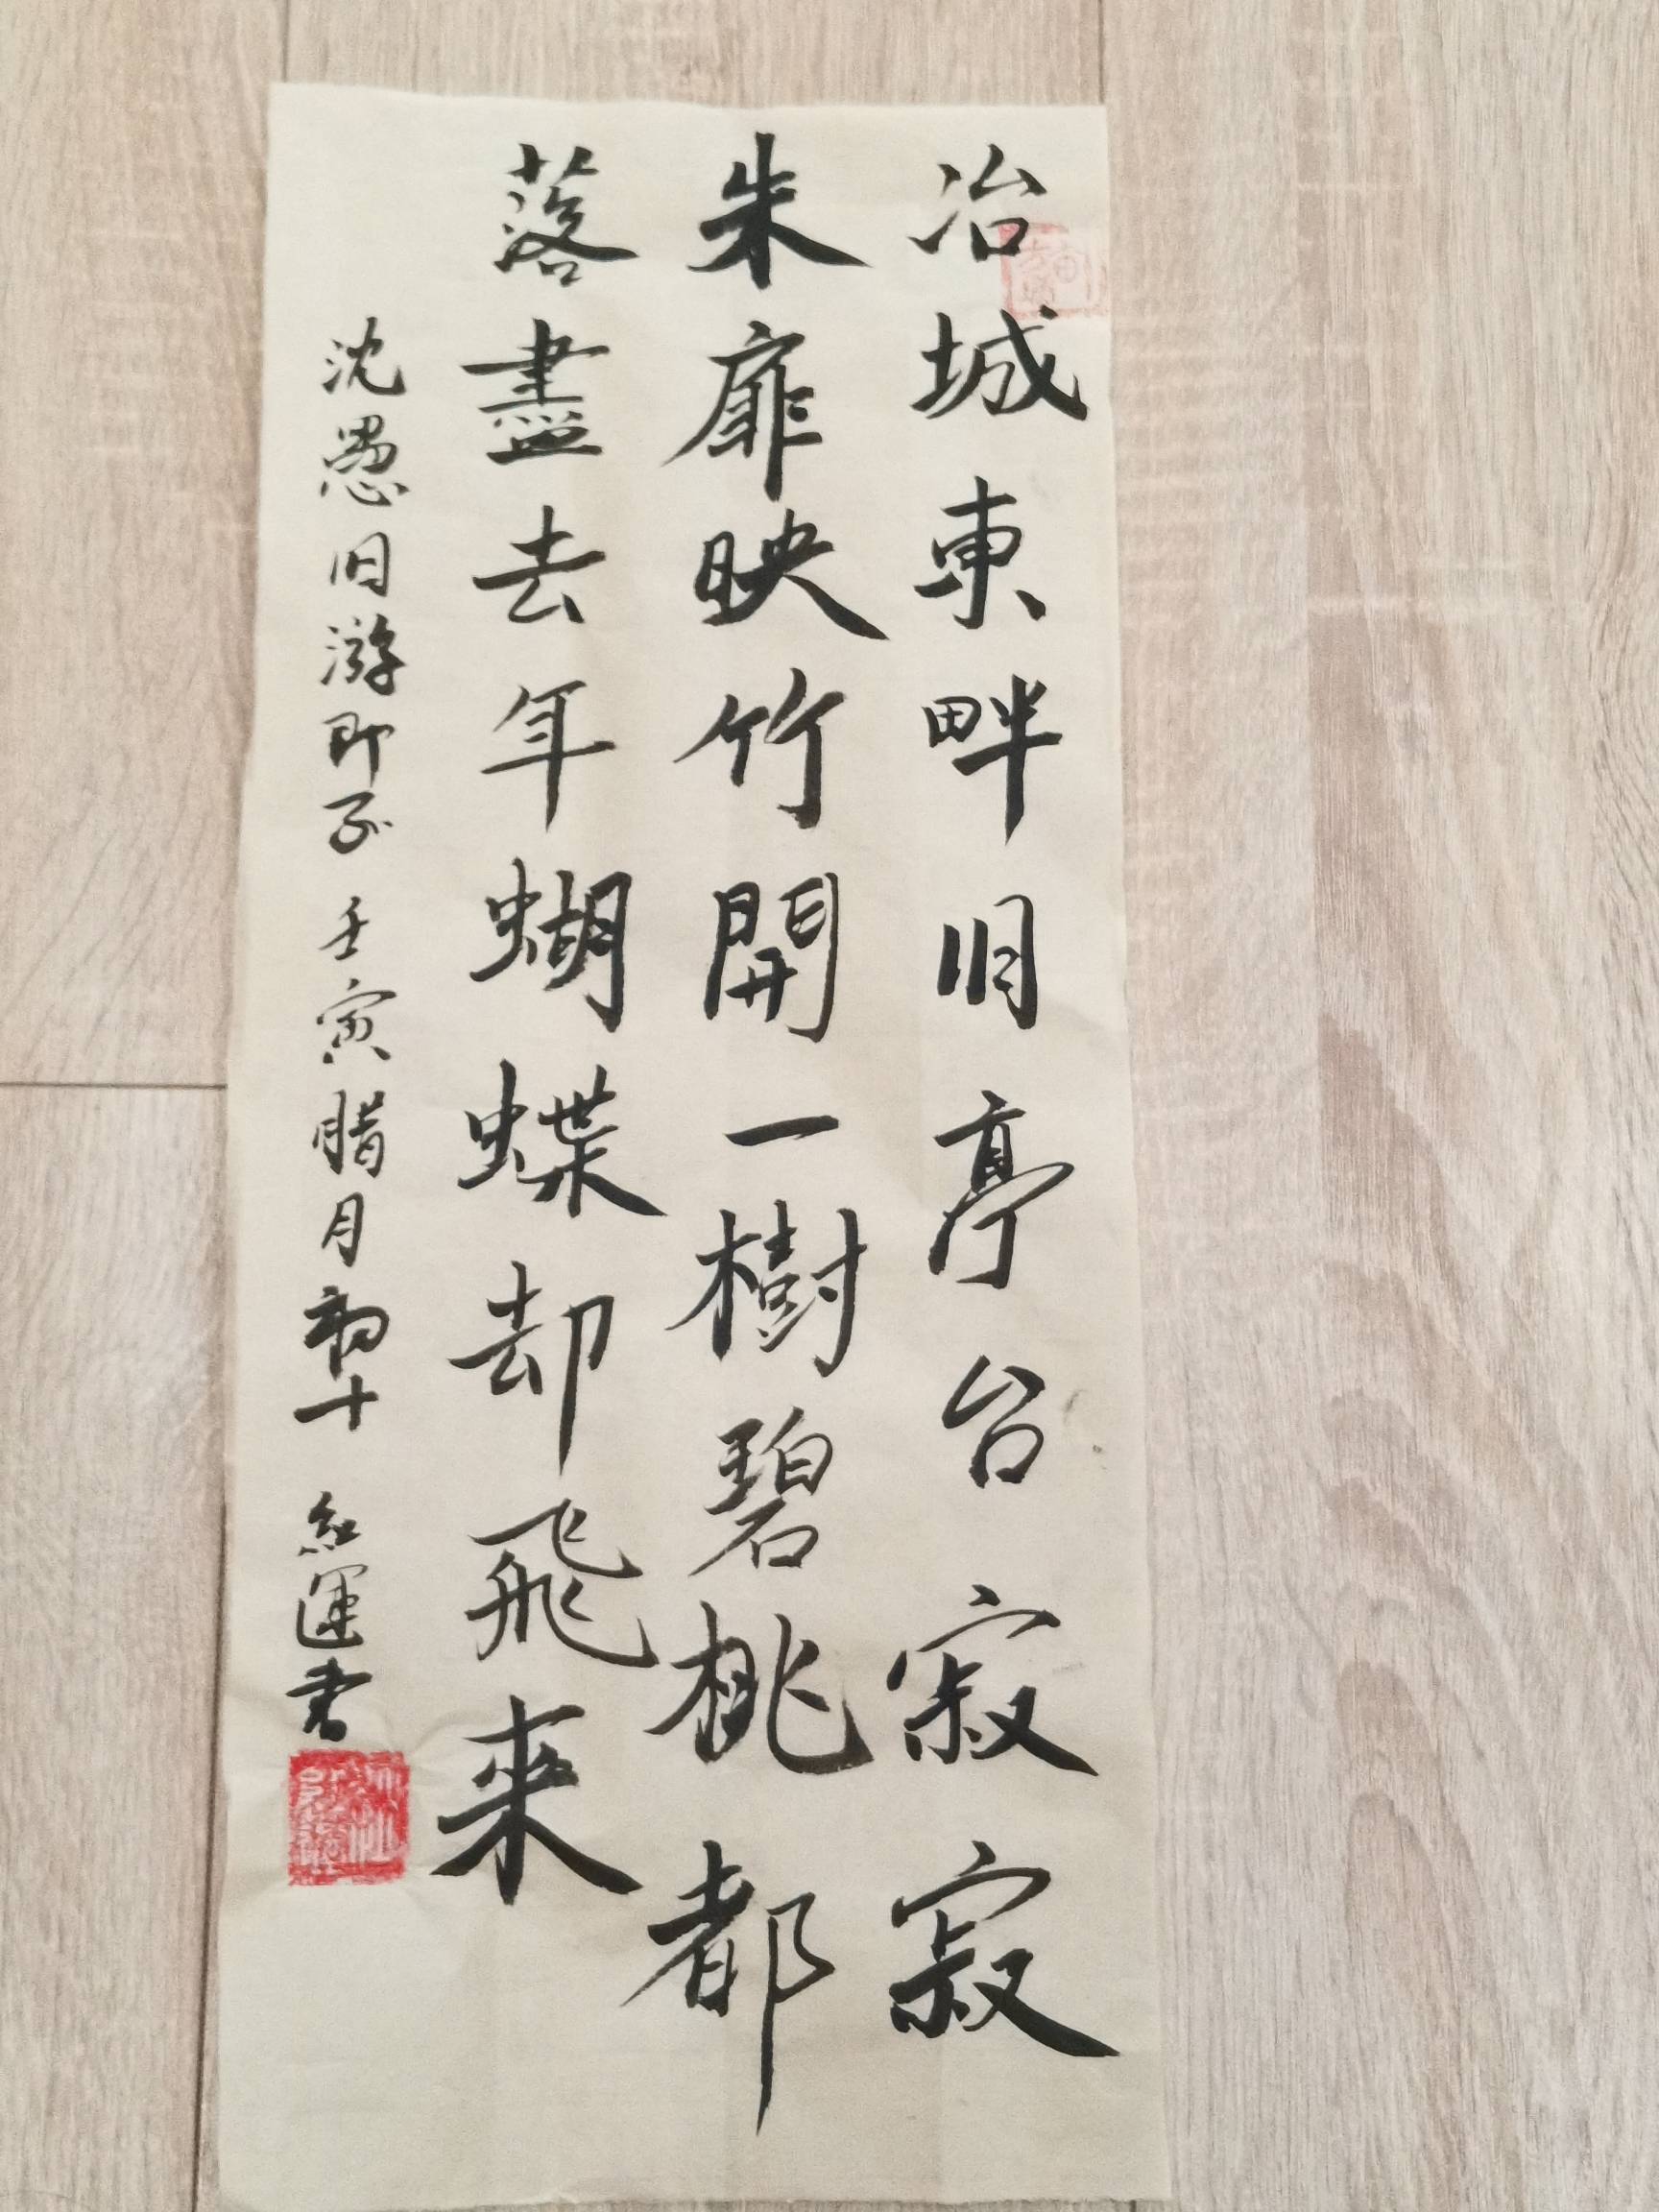 冶城東畔旧亭台寂寂
朱扉映竹開一樹碧桃都
落盡去年蝴蝶却飛来
沈愚旧游即子壬寅腊月初十紅運书